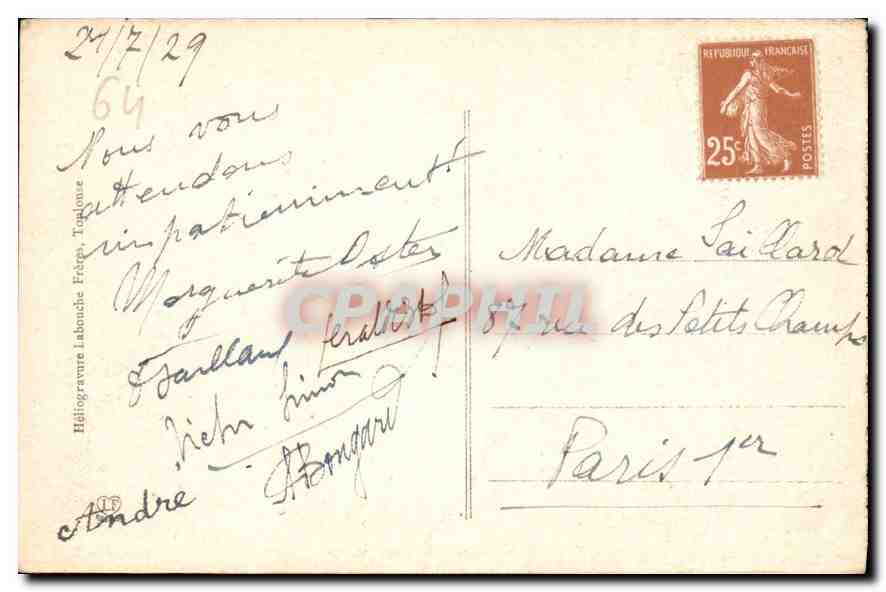 21/7/29
64
Nous vous
attendons
impatiemment!
Marguerite Oster
Saillard
Victor Simon
ABongard
Andre
Héliogravure Labouche Frères, Toulouse
REPUBLIQUE FRANÇAISE
25c
POSTES
Madame Saillard
87 rue des Petits Champs
Paris 1er
CPAPHIL